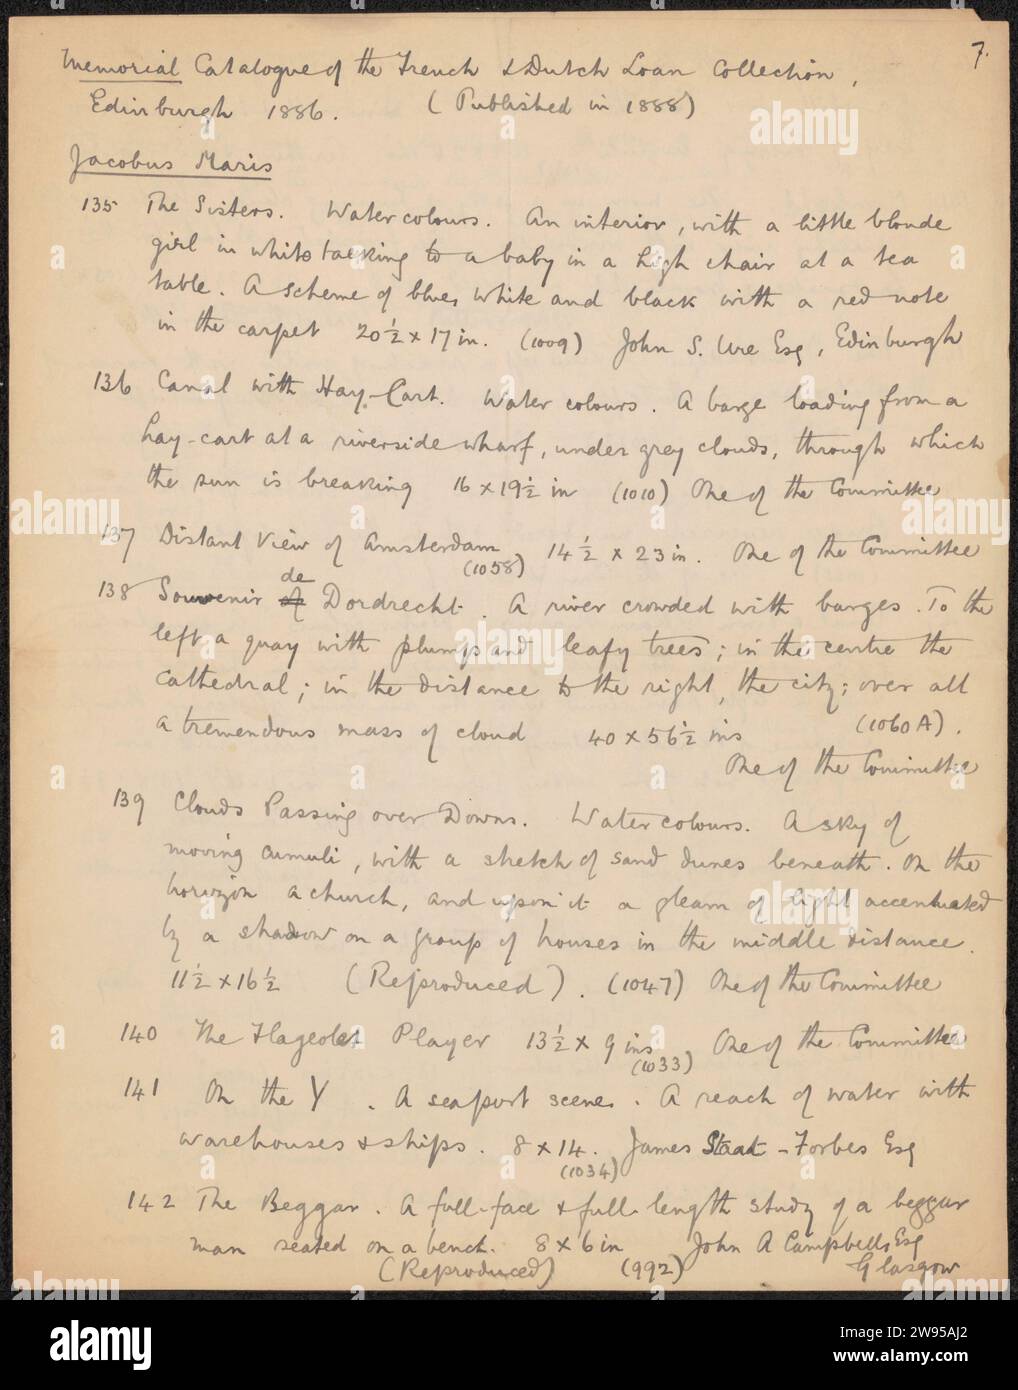 7.
Memorial Catalogue of the French & Dutch Loan Collection,
Edinburgh 1886. (Published in 1888)
Jacobus Maris
135 The Sisters. Water colours. An interior, with a little blonde
girl in white talking to a baby in a high chair at a tea
table. A scheme of blue, white and black with a red note
in the carpet 20½ x 17 in. (1009) John S. Ure Esq, Edinburgh
136 Canal with Hay-Cart. Water colours. A barge loading from a
hay-cart at a riverside wharf, under grey clouds, through which
the sun is breaking 16 x 19½ in (1010) One of the Committee
137 Distant View of Amsterdam 14½ x 23 in. One of the Committee
(1058)
de
138 Souvenir of Dordrecht. A river crowded with barges. To the
left a quay with plumps and leafy trees; in the centre the
Cathedral; in the distance to the right, the city; over all
a tremendous mass of cloud 40 x 56½ ins (1060A).
One of the Committee
139 Clouds Passing over Downs. Water colours. A sky of
moving cumuli, with a stretch of sand dunes beneath. On the
horizon a church, and upon it a gleam of light accentuated
by a shadow on a group of houses in the middle distance.
11½ x 16½ (Reproduced). (1047) One of the Committee
140 The Flageolet Player 13½ x 9 ins One of the Committee
(1033)
141 On the Y. A seaport scene. A reach of water with
warehouses & ships. 8 x 14. James Staat-Forbes Esq
(1034)
142 The Beggar. A full-face & full-length study of a beggar
man seated on a bench. 8 x 6 in John A Campbell, Esq
(Reproduced) (992) Glasgow
alamy
Image ID: 2W95AJ2
www.alamy.com